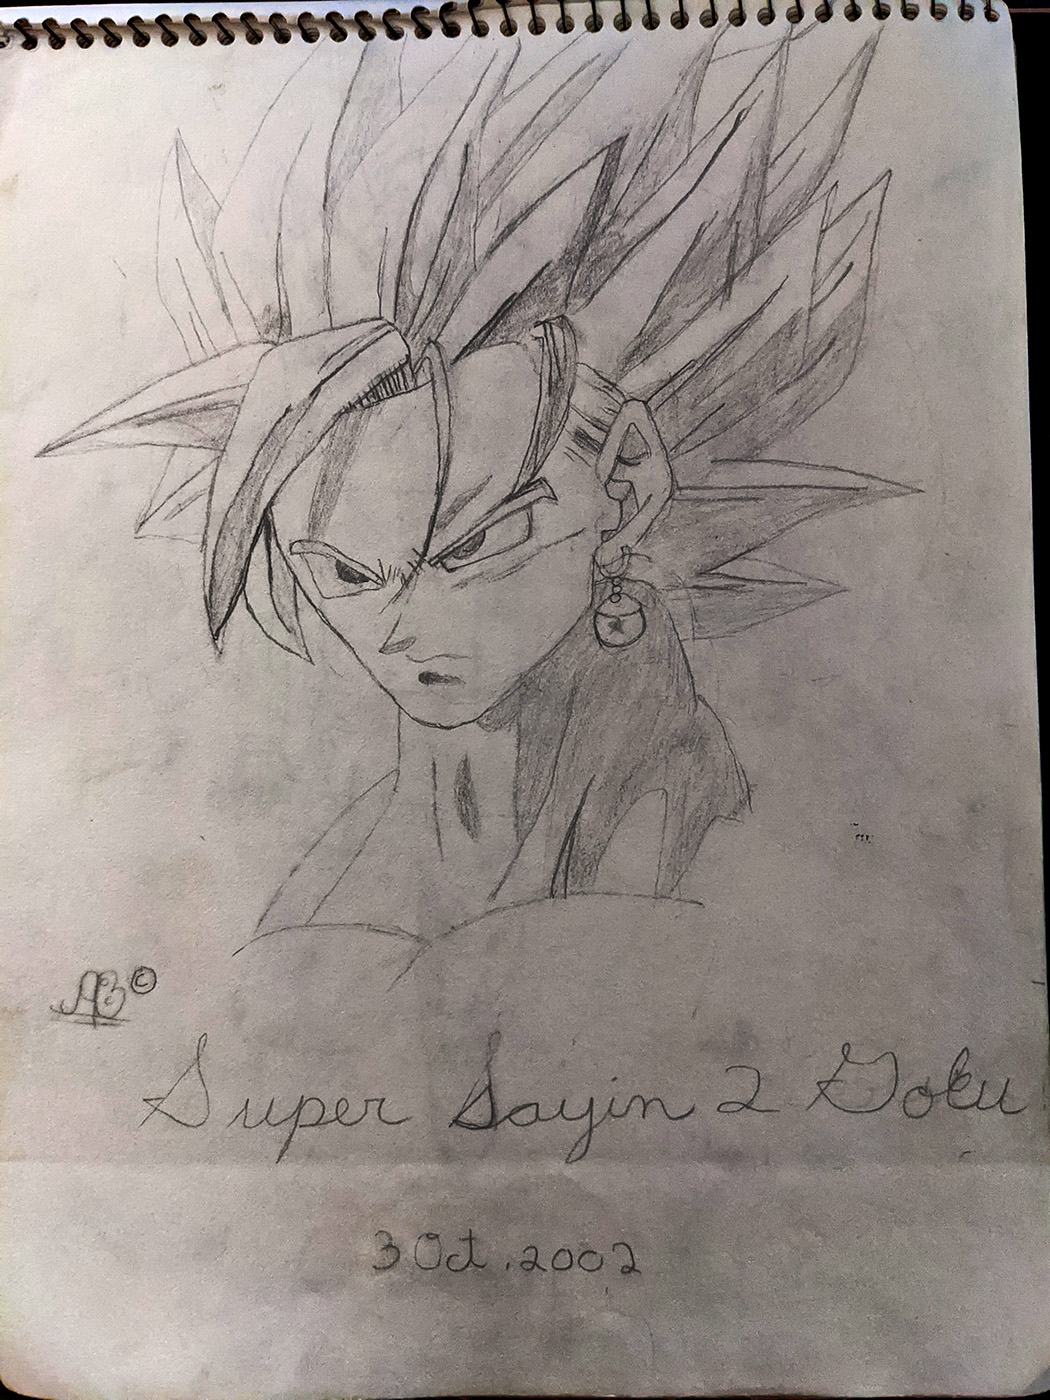 AB©
Super Sayin 2 Goku
3 Oct. 2002